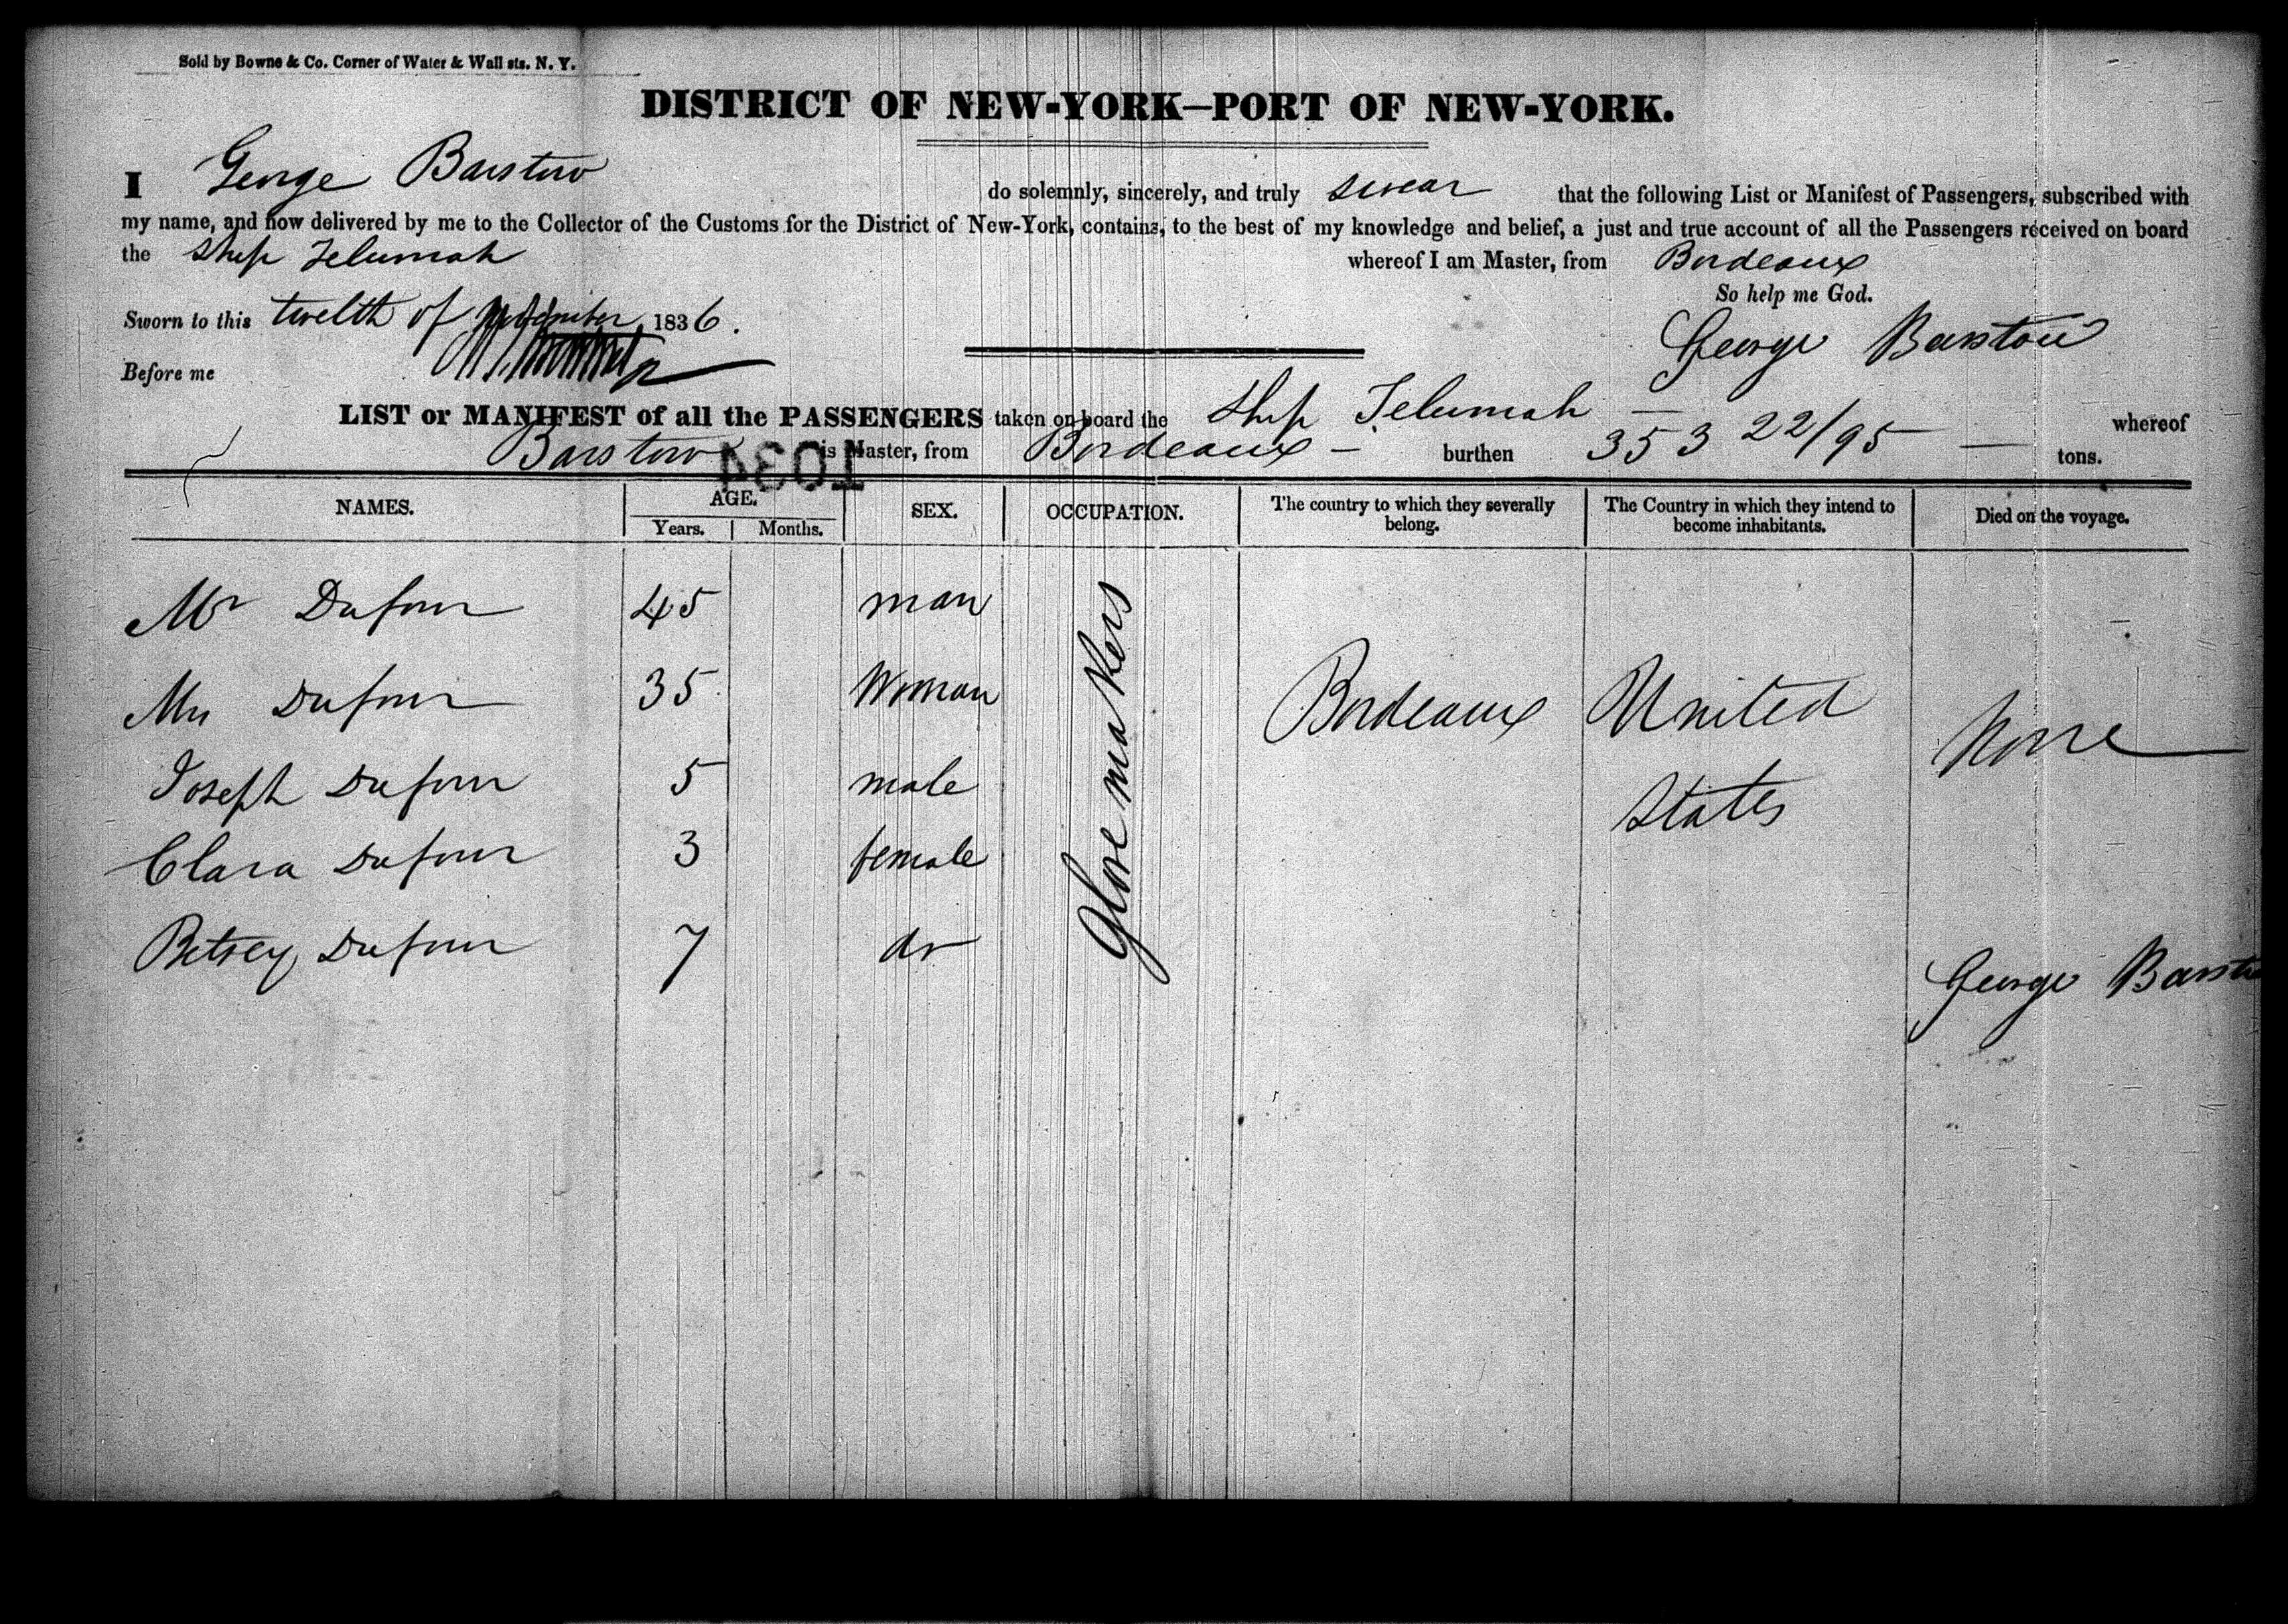 Sold by Bowne & Co. Corner of Water & Wall sts. N. Y.
DISTRICT OF NEW-YORK—PORT OF NEW-YORK.
I George Barstow do solemnly, sincerely, and truly swear that the following List or Manifest of Passengers, subscribed with
my name, and now delivered by me to the Collector of the Customs for the District of New-York, contains, to the best of my knowledge and belief, a just and true account of all the Passengers received on board
the Ship Telumah whereof I am Master, from Bordeaux
So help me God.
Sworn to this twelth of November 1836.
George Barstow
Before me
LIST or MANIFEST of all the PASSENGERS taken on board the Ship Telumah — whereof
Barstow is Master, from Bordeaux — burthen 353 22/95 — tons.
1034
NAMES. AGE. SEX. OCCUPATION. The country to which they severally belong. The Country in which they intend to become inhabitants. Died on the voyage.
Years. Months.
Mr Dufour 45 man
Mrs Dufour 35 Woman
Joseph Dufour 5 male
Clara Dufour 3 female
Betsey Dufour 7 do
Glove makers
Bordeaux
United
States
None
George Barstow